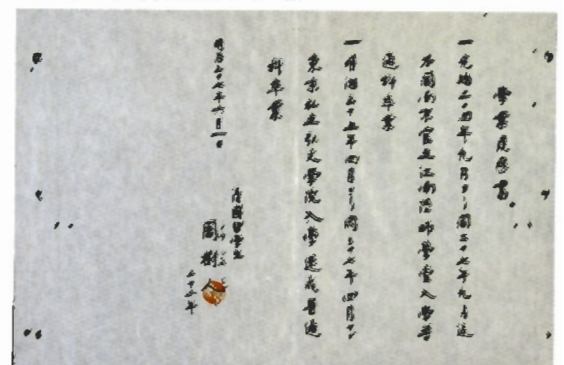 學業履歷書
一光緒二十四年九月ヨリ同二十七年九月迄
本國南京官立江南陸師學堂入學普
通科卒業
一明治三十五年四月ヨリ同三十七年四月迄
東京私立弘文學院入學速成普通
科卒業
明治三十七年六月一日
清國留學生
周樹
二十二年